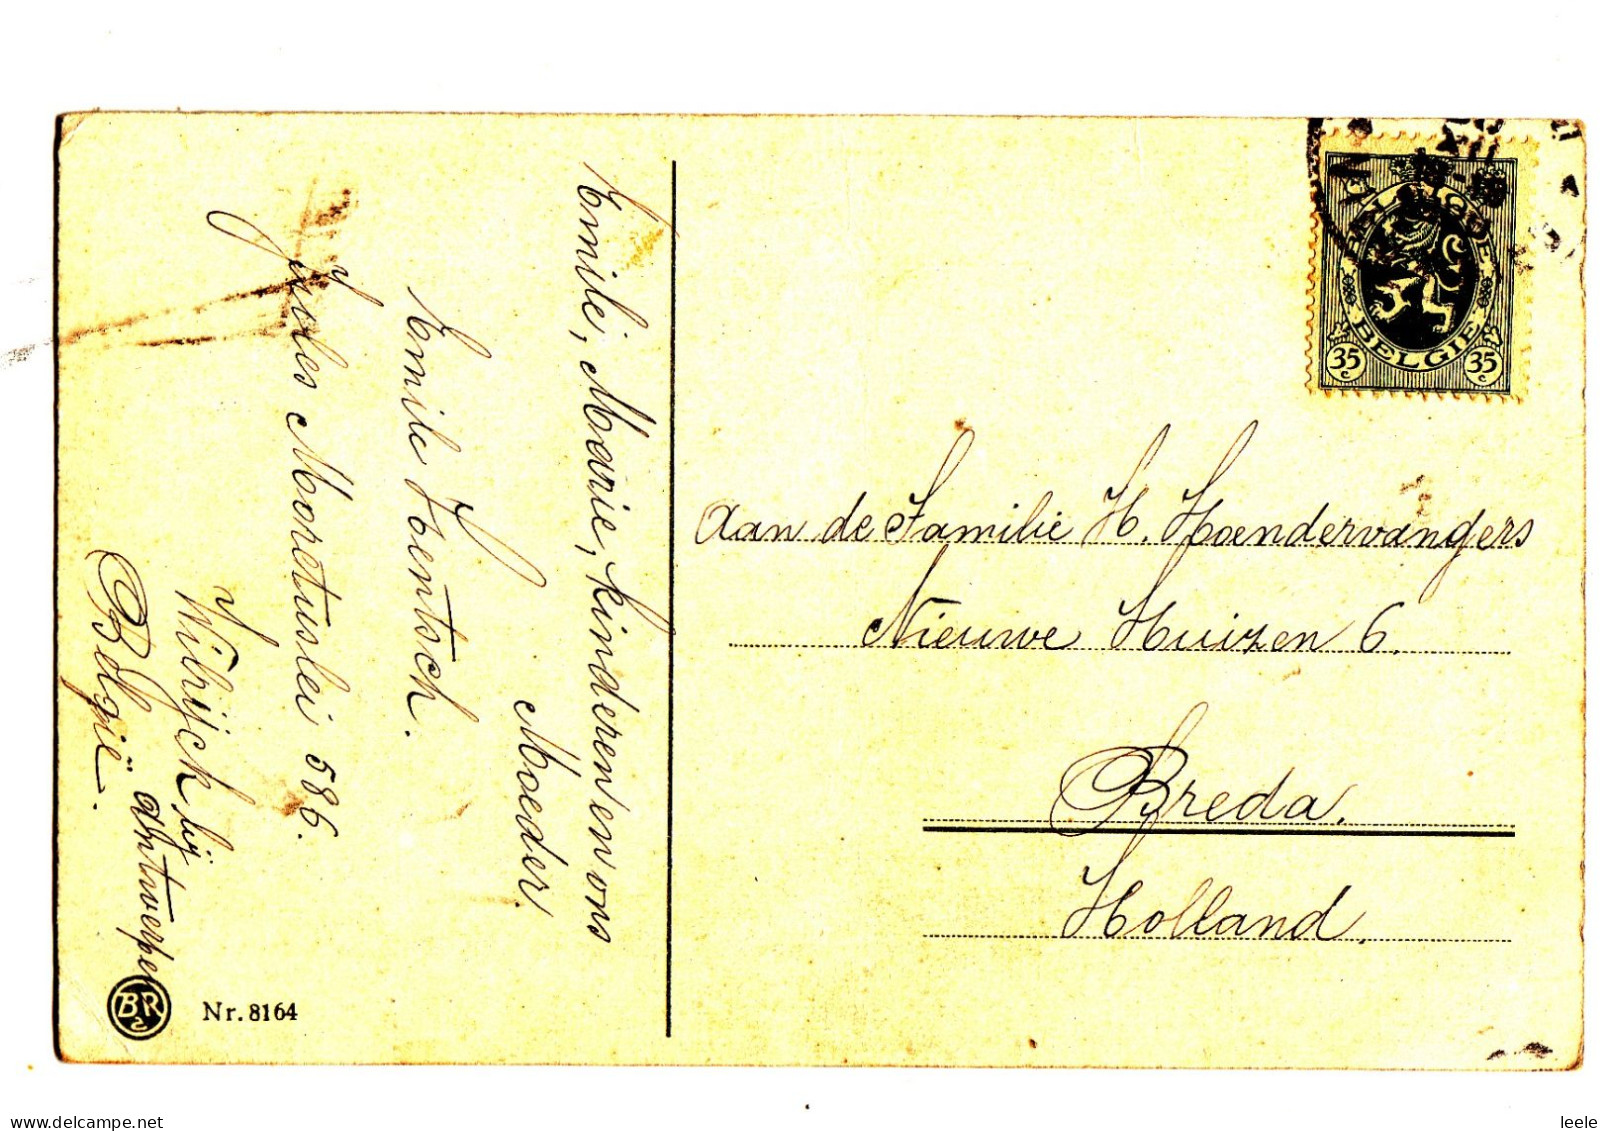 Emile, Marie, kinderen en ons
Moeder.
Emile Jentsch.
Jules Moretuslei 586.
Wilrijck bij
Antwerpen
België.
Nr. 8164
BELGIE
35 c
35 c
Aan de Familie H. Hoendervangers
Nieuwe Huizen 6.
Breda.
Holland.
www.delcampe.net
leele